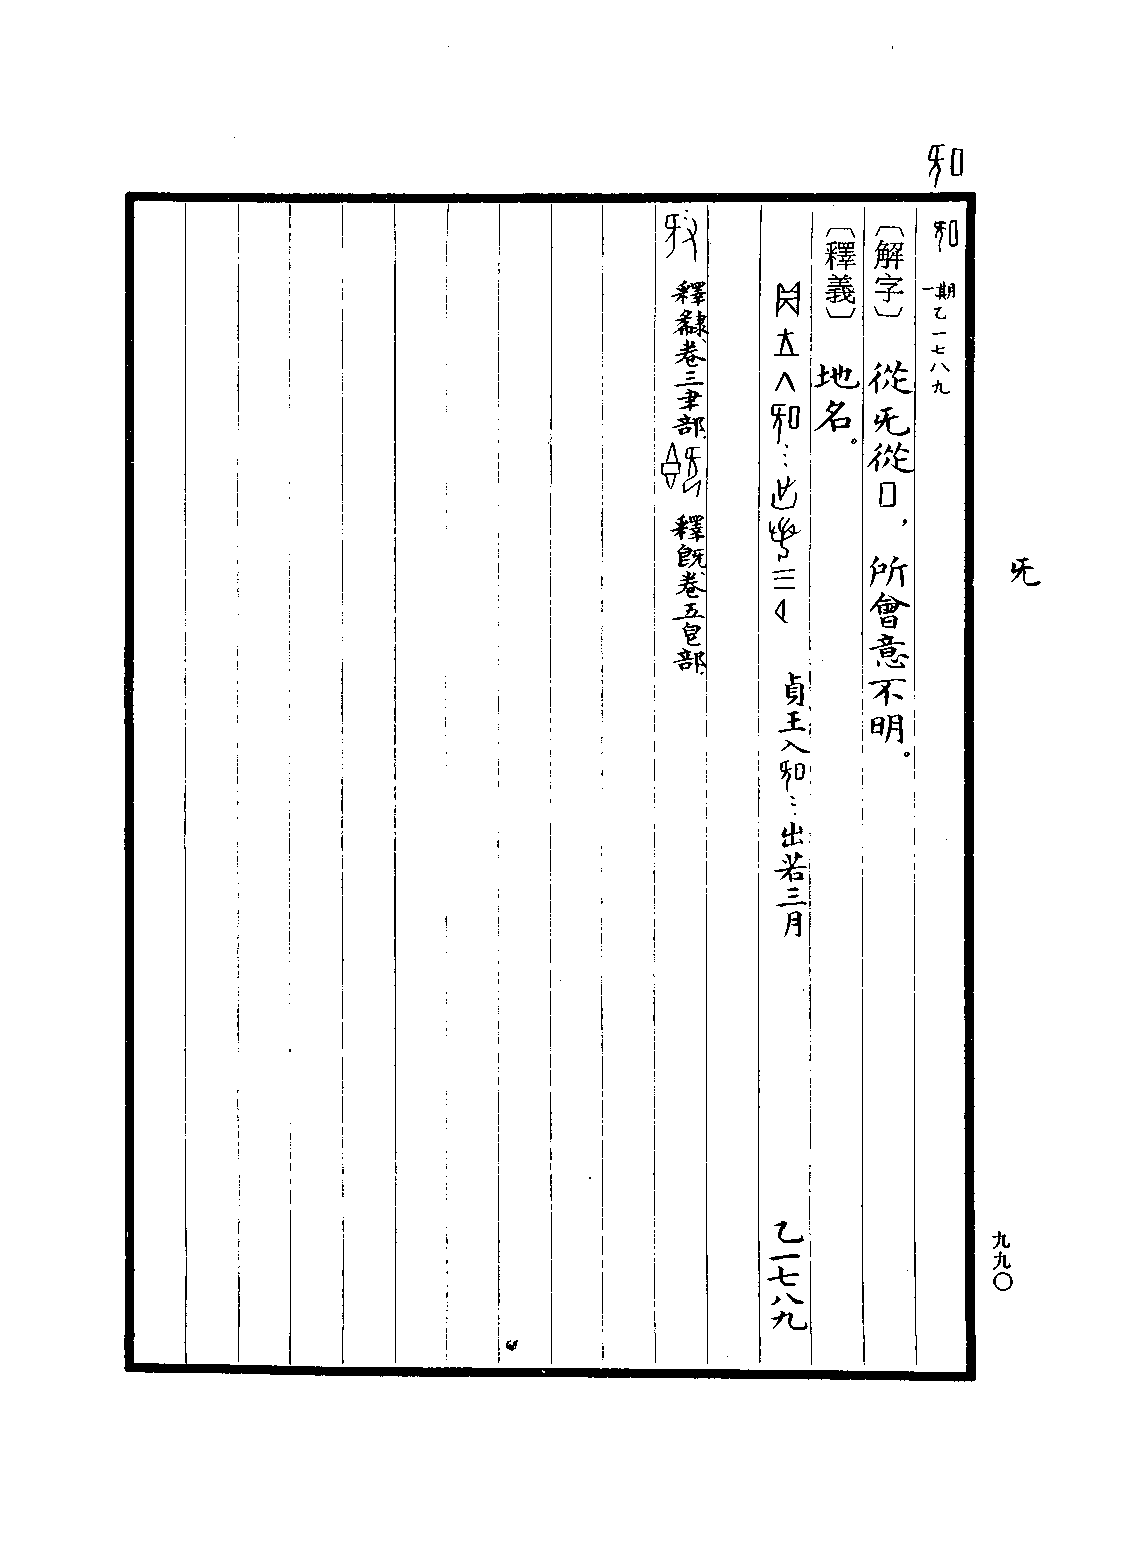 一期乙一七八九
〔解字〕從旡從口，所會意不明。
〔釋義〕地名。
貞王入…出若三月 乙一七八九
釋隸、卷三聿部、
釋旣、卷五皀部、
旡
九九〇